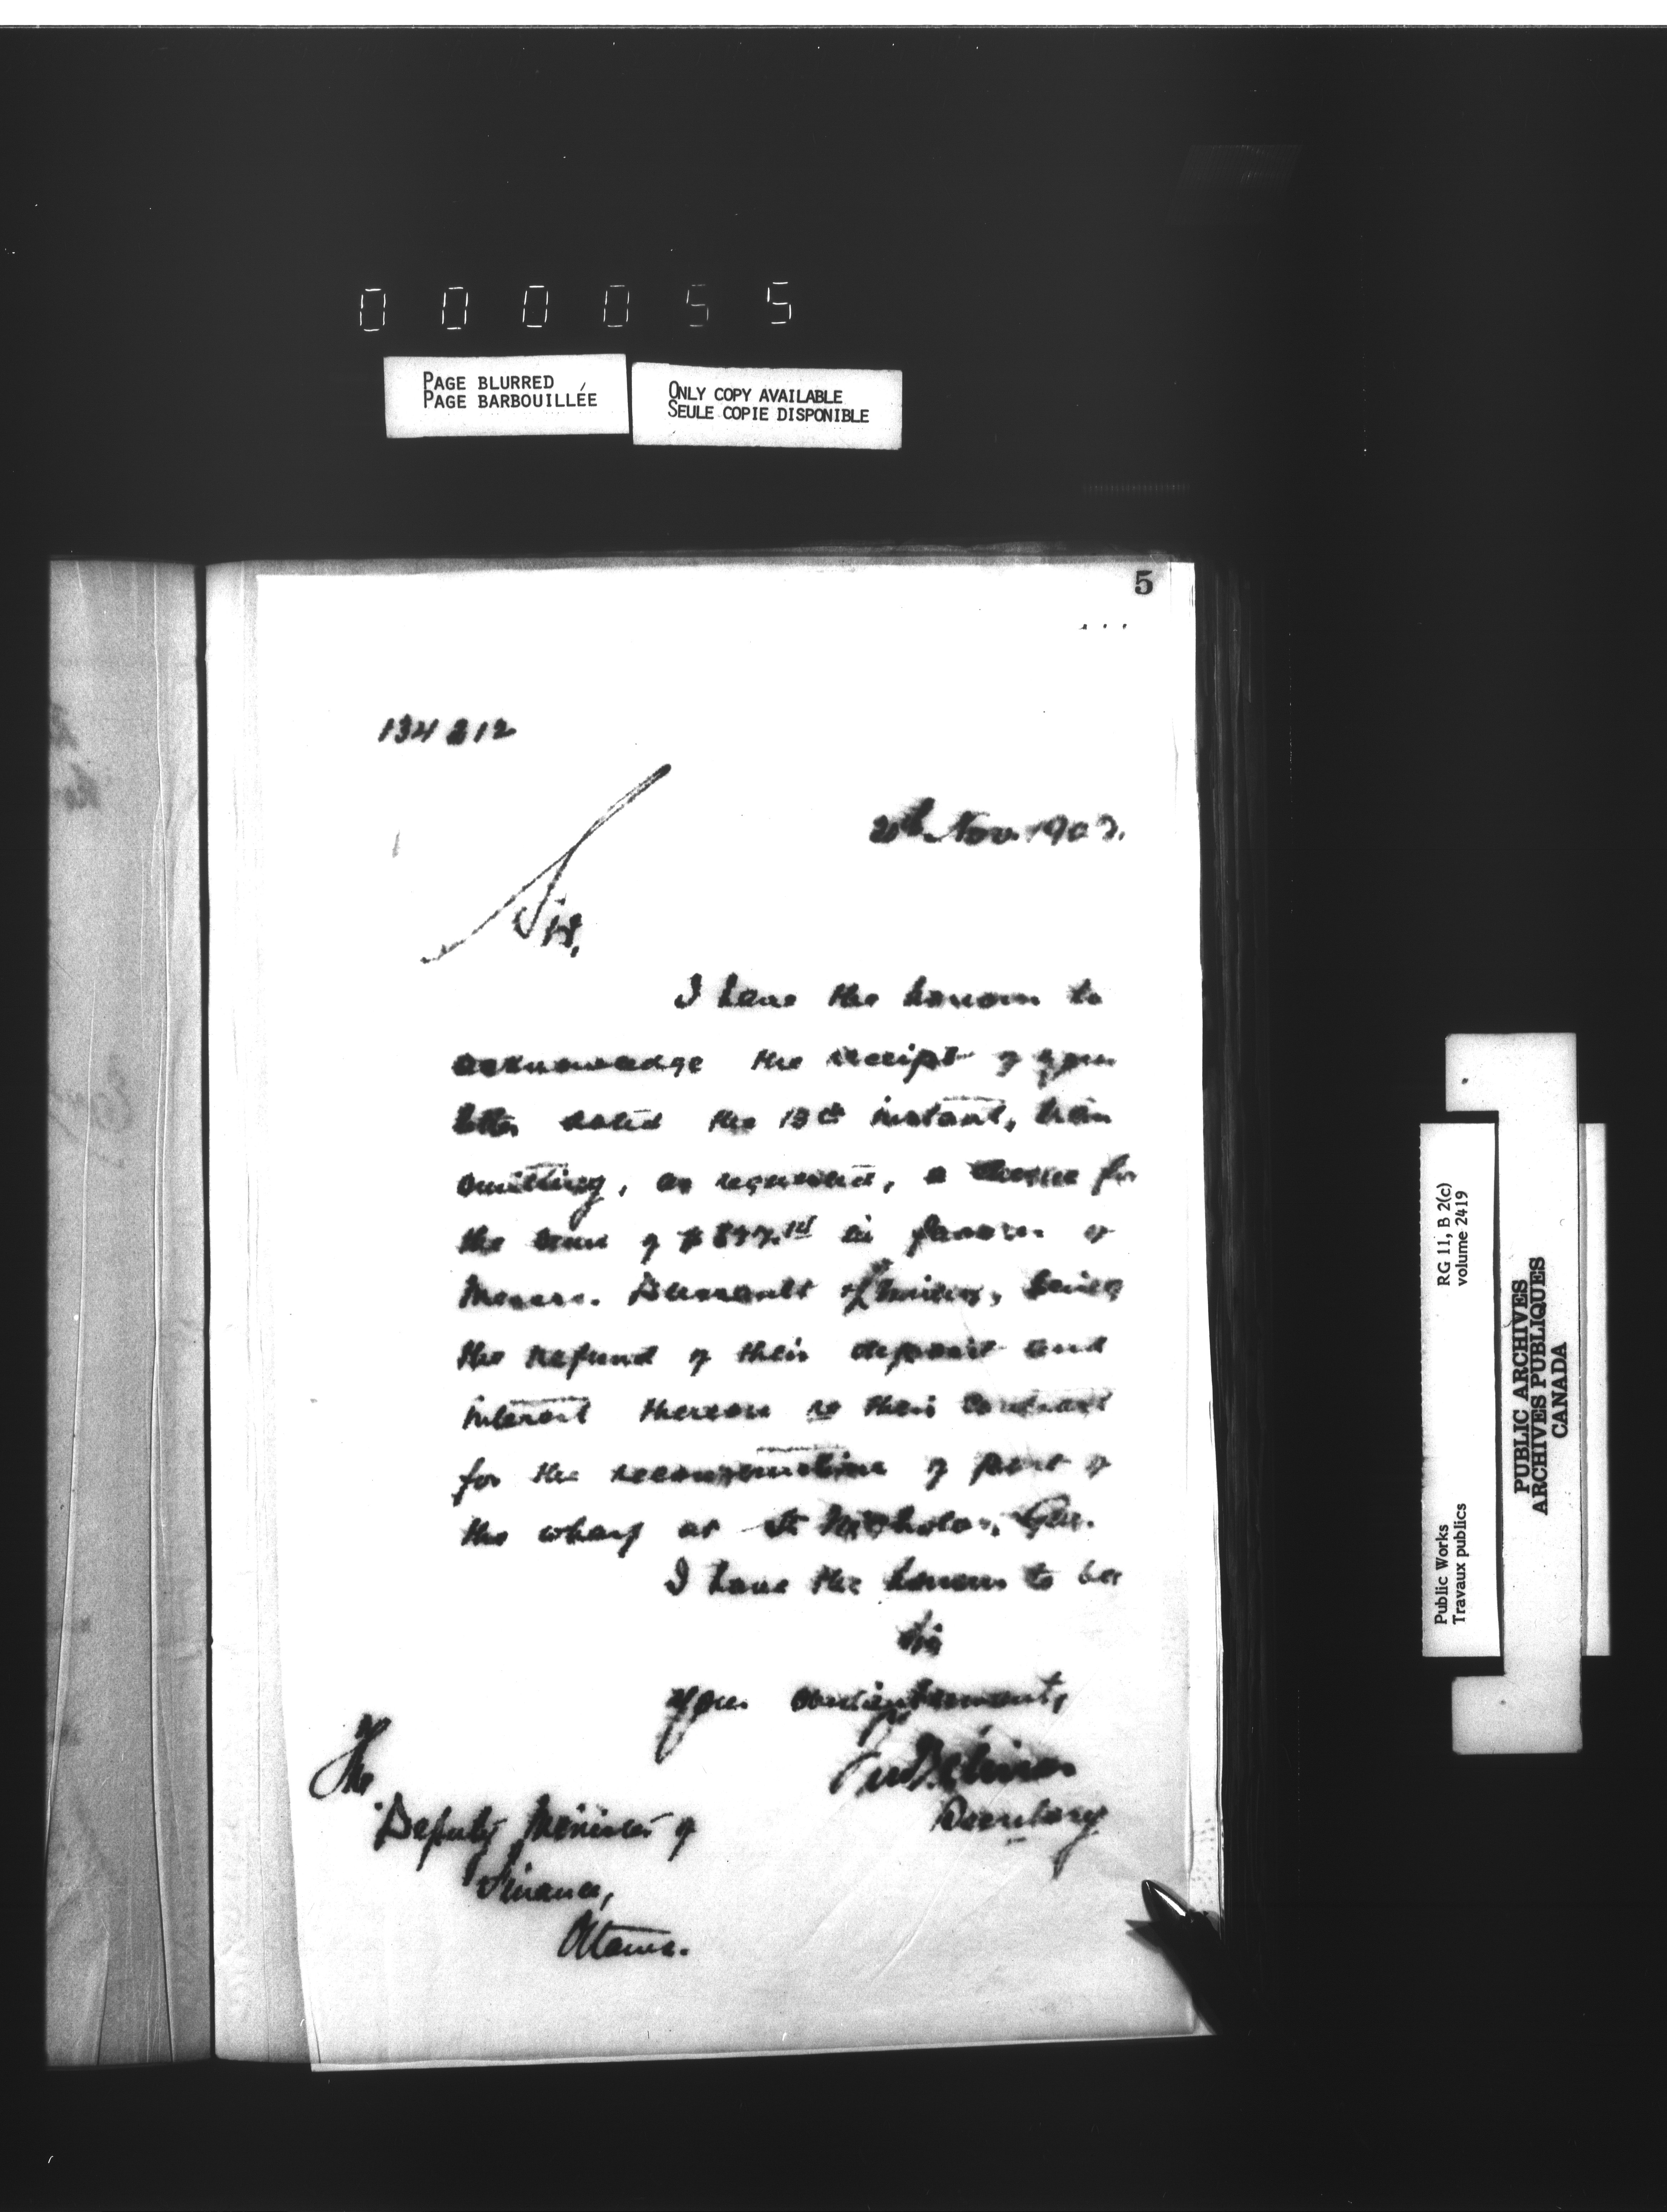 000055
PAGE BLURRED
PAGE BARBOUILLÉE
ONLY COPY AVAILABLE
SEULE COPIE DISPONIBLE
5
134212
20th Nov. 1903.
Sir,
I have the honour to
acknowledge the receipt of your
letter dated the 13th instant, trans
mitting, as requested, a cheque for
the sum of $ in favour of
Messrs. being
the refund of their deposit and
interest thereon re their contract
for the reconstruction of part of
the wharf at St Nicholas, Que.
I have the honour to be
Sir
Your obedient servant,
Secretary
The
Deputy Minister of
Finance,
Ottawa.
Public Works
Travaux publics
RG 11, B 2(c)
volume 2419
PUBLIC ARCHIVES
ARCHIVES PUBLIQUES
CANADA